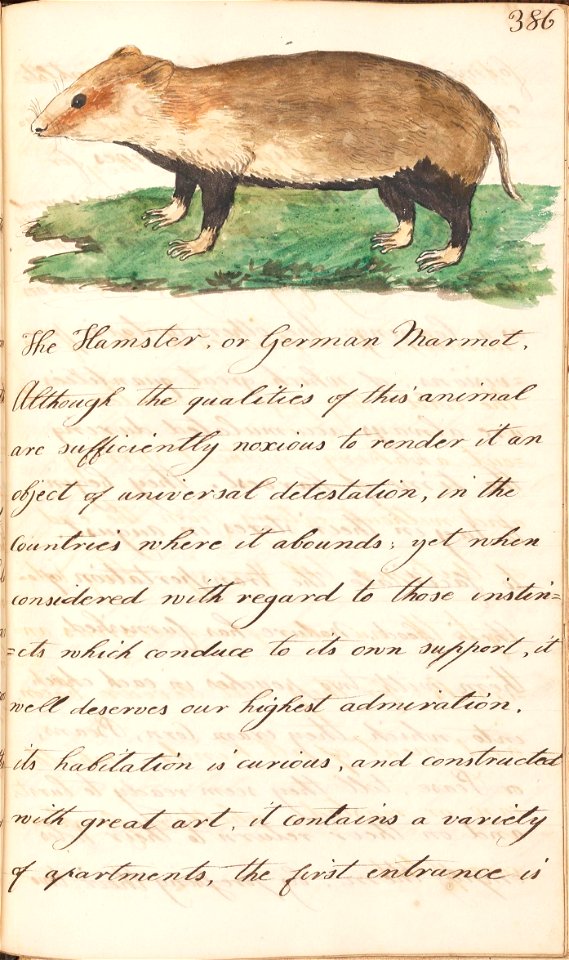 386
The Hamster, or German Marmot.
Although the qualities of this animal
are sufficiently noxious to render it an
object of universal detestation, in the
Countries where it abounds; yet when
considered with regard to those instin=
=cts which conduce to its own support, it
well deserves our highest admiration.
its habitation is curious, and constructed
with great art. it contains a variety
of apartments, the first entrance is